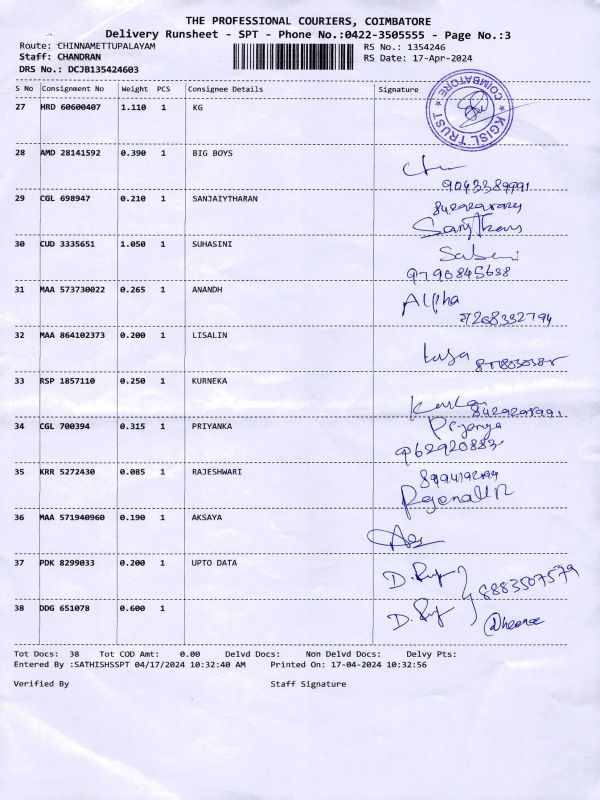 THE PROFESSIONAL COURIERS, COIMBATORE
Delivery Runsheet - SPT - Phone No.:0422-3505555 - Page No.:3
Route: CHINNAMETTUPALAYAM RS No.: 1354246
Staff: CHANDRAN RS Date: 17-Apr-2024
DRS No.: DCJB135424603
S No Consignment No Weight PCS Consignee Details Signature
27 HRD 60600407 1.110 1 KG
COIMBATORE
* KGISL TRUST *
28 AMD 28141592 0.390 1 BIG BOYS
29 CGL 698947 0.210 1 SANJAIYTHARAN
30 CUD 3335651 1.050 1 SUHASINI
9790845638
31 MAA 573730022 0.265 1 ANANDH
Alpha
32 MAA 864102373 0.200 1 LISALIN
33 RSP 1857110 0.250 1 KURNEKA
34 CGL 700394 0.315 1 PRIYANKA
35 KRR 5272430 0.085 1 RAJESHWARI
36 MAA 571940960 0.190 1 AKSAYA
37 PDK 8299033 0.200 1 UPTO DATA
8883507579
38 DDG 651078 0.600 1
Tot Docs: 38 Tot COD Amt: 0.00 Delvd Docs: Non Delvd Docs: Delvy Pts:
Entered By :SATHISHSSPT 04/17/2024 10:32:40 AM Printed On: 17-04-2024 10:32:56
Verified By Staff Signature